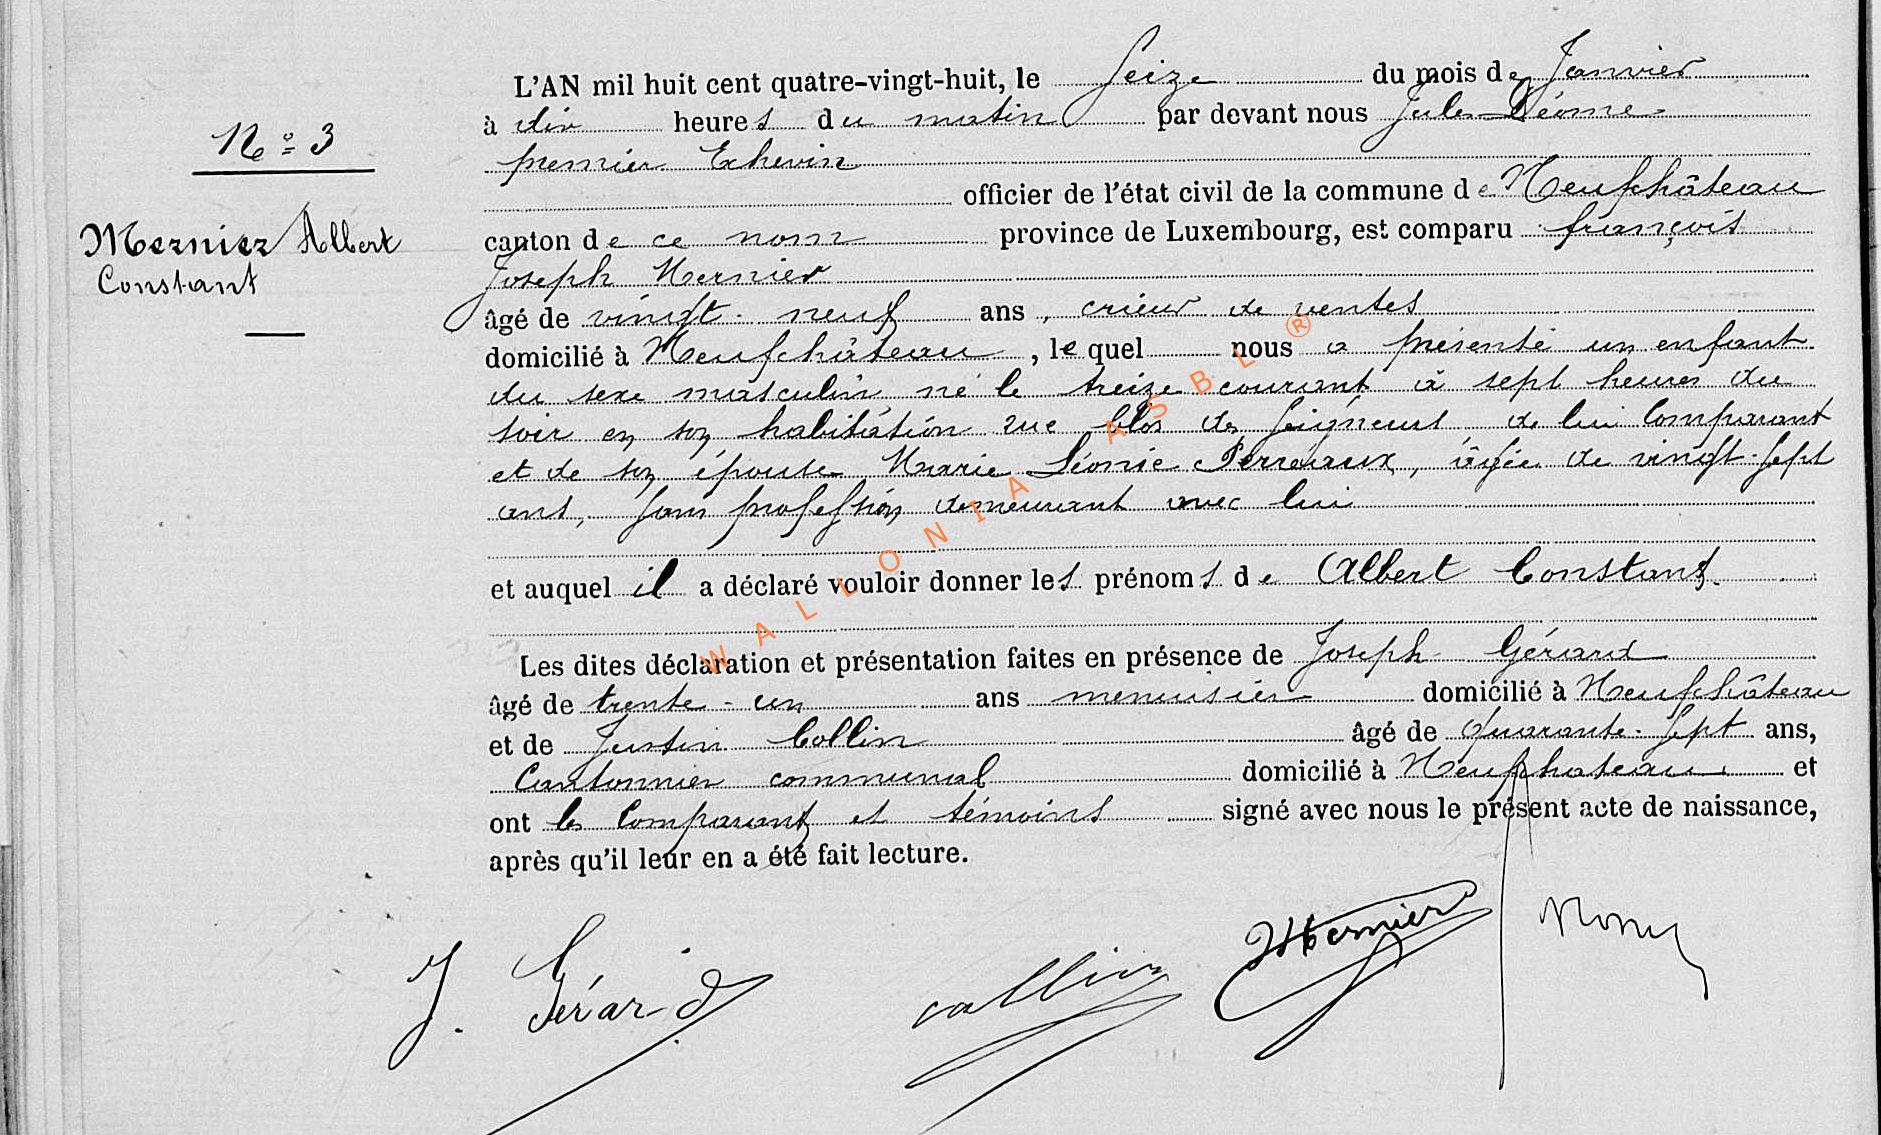 L'AN mil huit cent quatre-vingt-huit, le Seize du mois de Janvier
à dix heures du matin par devant nous Jules Déome
N° 3
premier Echevin
officier de l'état civil de la commune de Neufchâteau
Mernier Albert
Constant
canton de ce nom province de Luxembourg, est comparu françois
Joseph Mernier
âgé de vingt-neuf ans, crieur de ventes
domicilié à Neufchâteau, lequel nous a présenté un enfant
du sexe masculin né le treize courant à sept heures du
soir en son habitation rue Clos des Seigneurs de lui Comparant
et de son épouse Marie Léonie Perreaux, âgée de vingt-sept
ans, sans profession demeurant avec lui
et auquel il a déclaré vouloir donner les prénoms de Albert Constant.
Les dites déclaration et présentation faites en présence de Joseph Gérard
âgé de trente-un ans menuisier domicilié à Neufchâteau
et de Justin Collin âgé de quarante-sept ans,
Cantonnier communal domicilié à Neufchateau et
ont les Comparant et témoins signé avec nous le présent acte de naissance,
après qu'il leur en a été fait lecture.
J. Gérard collin Mernier
WALLONIA ASBL ®